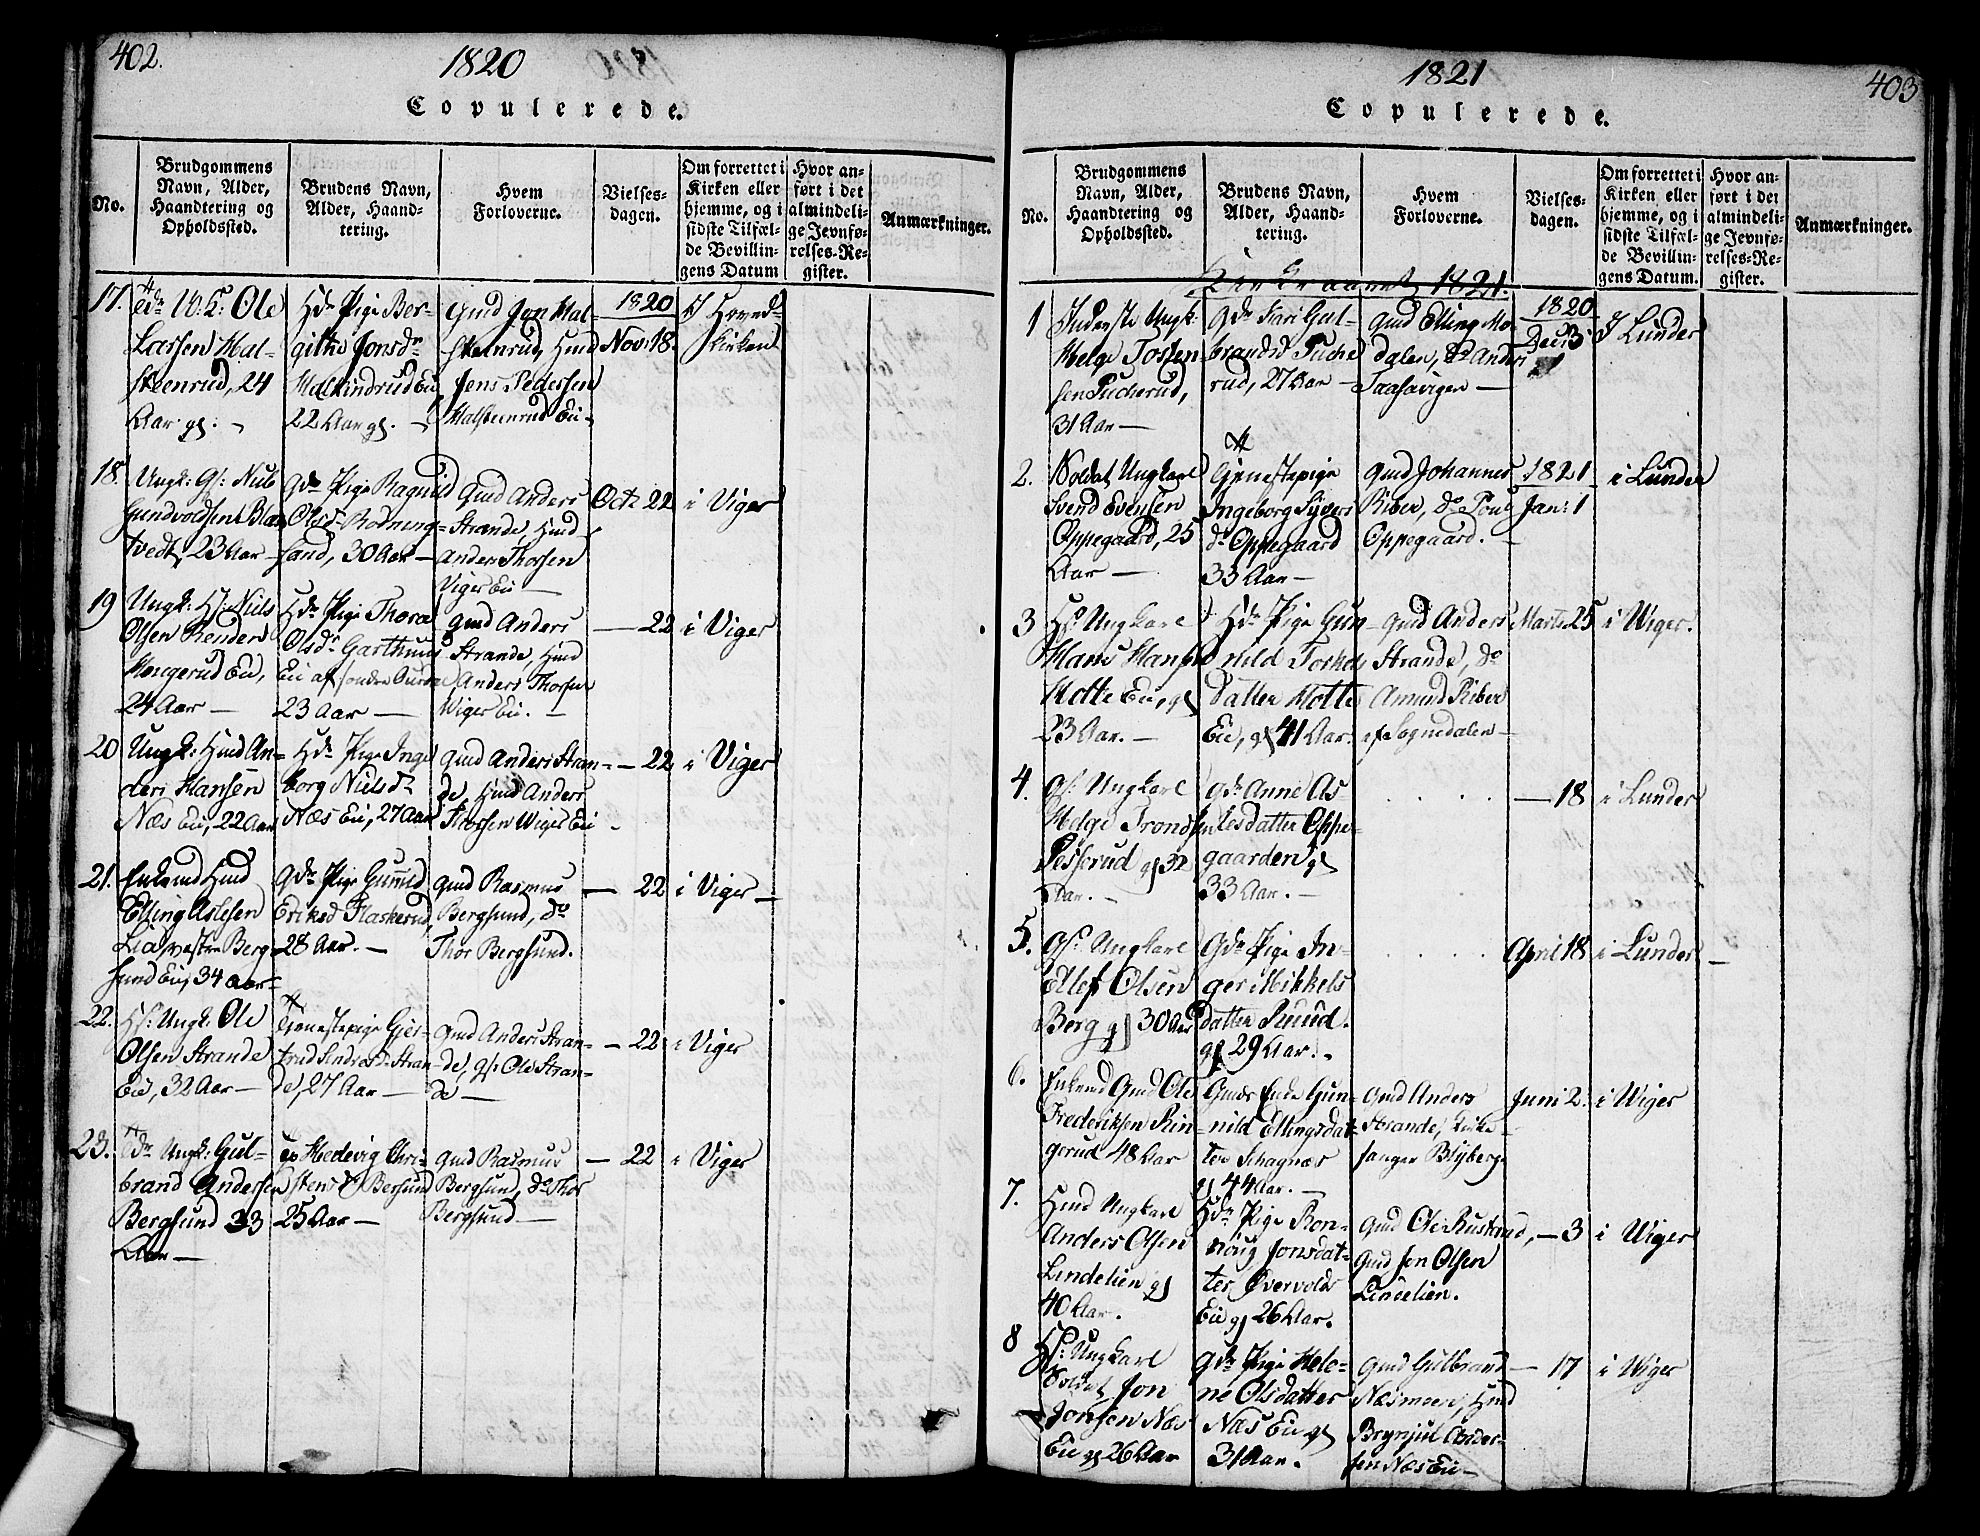 402.
1820
Copulerede.
No.
Brudgommens
Navn, Alder,
Haandtering og
Opholdssted.
Brudens Navn,
Alder, Haand-
tering.
Hvem
Forloverne.
Vielses-
dagen.
Om forrettet i
Kirken eller
hjemme, og i
sidste Tilfæl-
de Bevillin-
gens Datum
Hvor an-
ført i det
almindeli-
ge Jevnfø-
relses-Re-
gister.
Anmærkninger.
17.
Ole
Larsen Hal-
steenrud, 24
Aar gl.
Hdr Pige Ber-
githe Jonsdr
22 Aar gl.
Gmd Jon Hal-
steenrud, Hmd
Jens Pedersen
Halsteenrud Eie
1820
Nov: 18.
Hoved-
kirken
18.
Ungk: Gs: Nils
Gundvoldsen
tvedt, 23 Aar
Gdr Pige Ragnild
Olsdr Rodning-
sand, 30 Aar
Gmd Anders
Strande, Hmd
Anders Thorsen
Viger Eie
Octr 22
i Viger
19
Ungk: Hs: Niels
Olsen Renden
Hengerud Eie,
24 Aar
Hdr Pige Thora
Olsdr Garthuus
Eie af søndre Aurdal
23 Aar
Gmd Anders
Strande, Hmd
Anders Thorsen
Wiger Eie.
22
i Viger
20
Ungk: Hmd An-
ders Hansen
Næs Eie, 22 Aar
Hdr Pige Inge
borg Nielsdr
Næs Eie, 27 Aar
Gmd Anders Stran-
de, Hmd Anders
Thorsen Wiger Eie
22
i Viger
21.
Enkemd Hmd
Elling Aslesen
Lia vestre Berg-
sund Eie, 34 Aar
Gdr Pige Gunild
Eriksd Flaskerud,
28 Aar.
Gmd Rasmus
Bergsund, do
Thor Bergsund.
22
i Viger
22.
Hs: Ungk: Ole
Olsen Strande
Eie, 32 Aar
Tjenestepige Gjer-
trud Stran-
de, 27 Aar
Gmd Anders Stran-
de, gs: Ole Stran-
de
22
i Viger
23.
Ungk: Gul-
brand Andersen
Bergsund 33
Aar
Hedevig Chri-
stensd Bersund
25 Aar
Gmd Rasmus
Bergsund, do Thor
Bergsund
22
i Viger
403
1821
Copulerede.
No.
Brudgommens
Navn, Alder,
Haandtering og
Opholdssted.
Brudens Navn,
Alder, Haand-
tering.
Hvem
Forloverne.
Vielses-
dagen.
Om forrettet i
Kirken eller
hjemme, og i
sidste Tilfæl-
de Bevillin-
gens Datum.
Hvor an-
ført i det
almindeli-
ge Jevnfø-
relses-Re-
gister.
Anmærkninger.
Kirkeaaret 1821.
1
Inderste Ungk:
Helge Torsten
sen Pucherud,
31 Aar
Gdr Kari Gul-
brandsd Puche
rud, 27 Aar
Gmd Elling Mo-
dalen, do Anders
1820
Decr 3
I Lunder
2.
Soldat Ungkarl
Svend Evensen
Oppegaard, 25
Aar
Tjenestepige
Ingeborg Syvers
dr Oppegaard
33 Aar
Gmd Johannes
Riber, do Poul
Oppegaard.
1821
Jan: 1
i Lunder
3
Hs: Ungkarl
Hans Hansen
Hotte Eie, gl
23 Aar.
Hdr Pige Gun
nild Torkels
datter Hotte
Eie, gl 41 Aar.
Gmd Anders
Strande, do
Amund Riber
af Sognedalen
Marts 25
i Wiger.
4.
Gs: Ungkarl
Helge Trondsen
Pesserud gl 32
Aar.
Gdr Anne As-
lesdatter Oppe-
gaarden gl
33 Aar.
18
i Lunder
5.
Gs: Ungkarl
Ellef Olsen
Berg gl 30 Aar
Gdr Pige In-
ger Mikkels
datter Ruud.
gl 29 Aar.
April 18
i Lunder
6.
Enkemd Gmd Ole
Frederiksen Rin-
gerud 48 Aar
Gmds Enke Gun-
nild Ellingsdat-
ter Skagnæs
gl 44 Aar.
Gmd Anders
Strande, Kirke-
sanger Blyberg
Juni 2.
i Wiger
7.
Hmd Ungkarl
Anders Olsen
Lindelien gl
40 Aar.
Hdr Pige Ron-
noug Jonsdat-
ter Overvolds
Eie gl 26 Aar.
Gmd Ole Rustand,
Gmd Jon Olsen
Lindelien.
3
i Wiger
8
Hs: Ungkarl
Soldat Jon
Jonsen Næs
Eie gl 26 Aar
Gdr Pige Hele-
ne Olsdatter
Næs Eie gl
31 Aar.
Gmd Gulbrand
Næsmoen, Hmd
Brynjul Ander-
sen Næs Eie
17
i Wiger